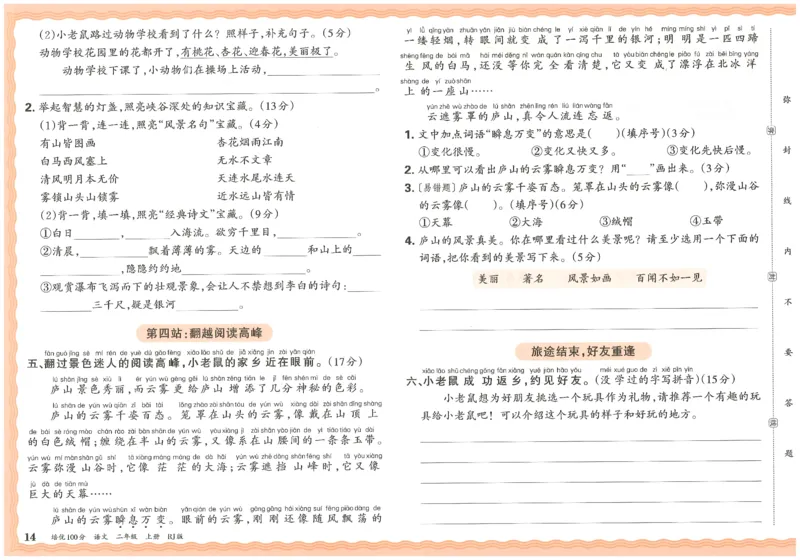 (2)小老鼠路过动物学校看到了什么？照样子，补充句子。(5分)
动物学校花园里的花都开了，有桃花、杏花、迎春花，美丽极了。
动物学校下课了，小动物们在操场上活动，
。
2. 举起智慧的灯盏，照亮峡谷深处的知识宝藏。(13分)
(1)背一背，连一连，照亮“风景名句”宝藏。(4分)
有山皆图画 杏花烟雨江南
白马西风塞上 无水不文章
清风明月本无价 天连水尾水连天
雾锁山头山锁雾 近水远山皆有情
(2)背一背，填一填，照亮“经典诗文”宝藏。(9分)
①白日 , 入海流。欲穷千里目， 。
②清晨， 飘着薄薄的雾。天边的 和山上的
,隐隐约约地 。
③观赏瀑布飞泻而下的壮观景象，会让人不禁想到李白的诗句：
三千尺，疑是银河 。
第四站：翻越阅读高峰
fān guò jǐng sè mí rén de yuè dú gāo fēng xiǎo lǎo shǔ de jiā xiāng jìn zài yǎn qián
五、翻过景色迷人的阅读高峰，小老鼠的家乡近在眼前。(17分)
lú shān jǐng sè xiù lì ér yún wù gèng gěi lú shān zēng tiān le jǐ fēn shén mì de sè cǎi
庐山景色秀丽，而云雾更给庐山增添了几分神秘的色彩。
lú shān de yún wù qiān zī bǎi tài lǒng zhào zài shān tóu de yún wù xiàng dài zài shān dǐng shàng
庐山的云雾千姿百态。笼罩在山头的云雾，像戴在山顶上
de bái sè róng mào chán rào zài bàn shān de yún wù yòu xiàng jì zài shān yāo jiān de yì tiáo tiáo yù dài
的白色绒帽；缠绕在半山的云雾，又像系在山腰间的一条条玉带。
yún wù mí màn shān gǔ shí tā xiàng máng máng de dà hǎi yún wù zhē dǎng shān fēng shí tā yòu xiàng
云雾弥漫山谷时，它像茫茫的大海；云雾遮挡山峰时，它又像
jù dà de tiān mù
巨大的天幕……
lú shān de yún wù shùn xī wàn biàn yǎn qián de yún wù gāng gāng hái xiàng suí fēng piāo dàng de
庐山的云雾瞬息万变。眼前的云雾，刚刚还像随风飘荡的
14 培优100分 语文 二年级 上册 RJ版
yì lǚ qīng yān zhuǎn yǎn jiān jiù biàn chéng le yí xiè qiān lǐ de yín hé míng míng shì yì pǐ sì tí
一缕轻烟，转眼间就变成了一泻千里的银河；明明是一匹四蹄
shēng fēng de bái mǎ hái méi děng nǐ wán quán kàn qīng chu tā yòu biàn chéng le piāo fú zài běi bīng yáng
生风的白马，还没等你完全看清楚，它又变成了漂浮在北冰洋
shàng de yí zuò shān
上的一座山……
yún zhē wù zhào de lú shān zhēn lìng rén liú lián wàng fǎn
云遮雾罩的庐山，真令人流连忘返。
1. 文中加点词语“瞬息万变”的意思是( )(填序号)(3分)
①变化很慢。 ②变化又快又多。 ③变化先快后慢。
2. 从哪里可以看出庐山的云雾瞬息万变？用“ ”画出来。(3分)
3. [易错题]庐山的云雾千姿百态。笼罩在山头的云雾像( )，弥漫山谷
的云雾像( )。(填序号)(6分)
①天幕 ②大海 ③绒帽 ④玉带
4. 庐山的风景真美。你在哪里看过什么美景呢？请至少选用一个下面的
词语，把你看到的美景写下来。(5分)
美丽 著名 风景如画 百闻不如一见
旅途结束，好友重逢
xiǎo lǎo shǔ chéng gōng fǎn xiāng yuē jiàn hǎo yǒu méi xué guo de zì xiě pīn yīn
六、小老鼠成功返乡，约见好友。(没学过的字写拼音)(15分)
小老鼠想为好朋友挑选一个玩具作为礼物，请推荐一个有趣的玩
具给小老鼠吧！可以介绍这个玩具的样子和好玩的地方。
弥
封
线
内
不
要
答
题